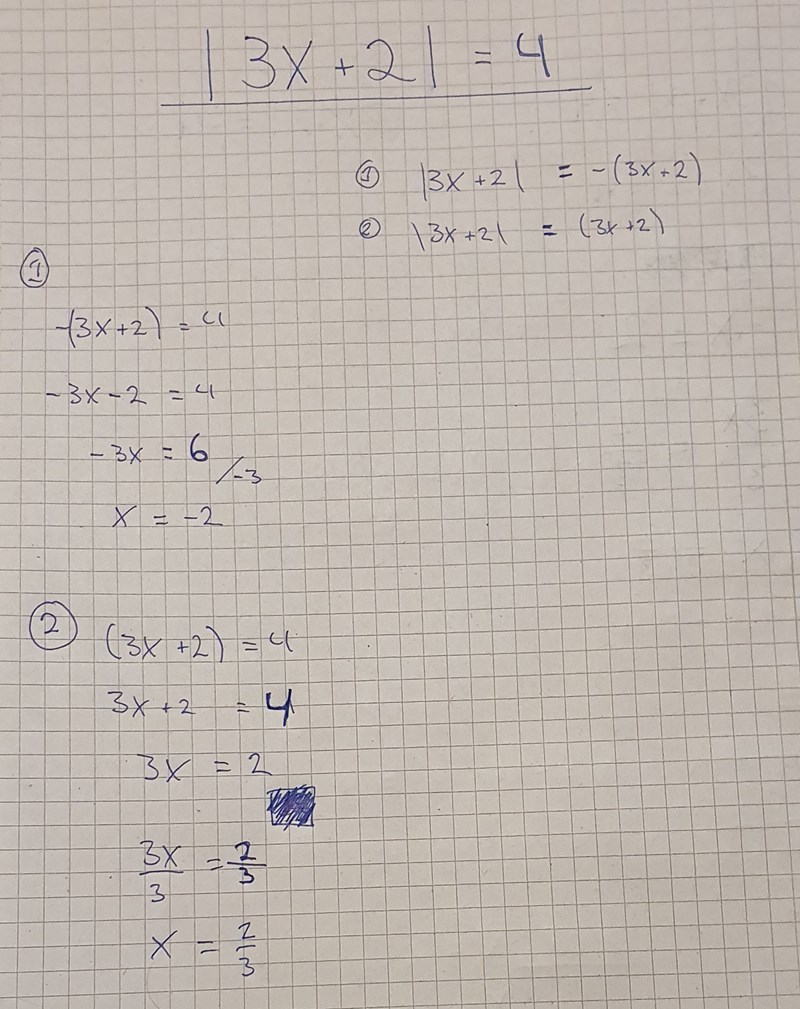 |3x+2| = 4
① |3x+2| = -(3x+2)
② |3x+2| = (3x+2)
①
-(3x+2) = 4
-3x-2 = 4
-3x = 6 /-3
x = -2
② (3x+2) = 4
3x+2 = 4
3x = 2
3x/3 = 2/3
x = 2/3